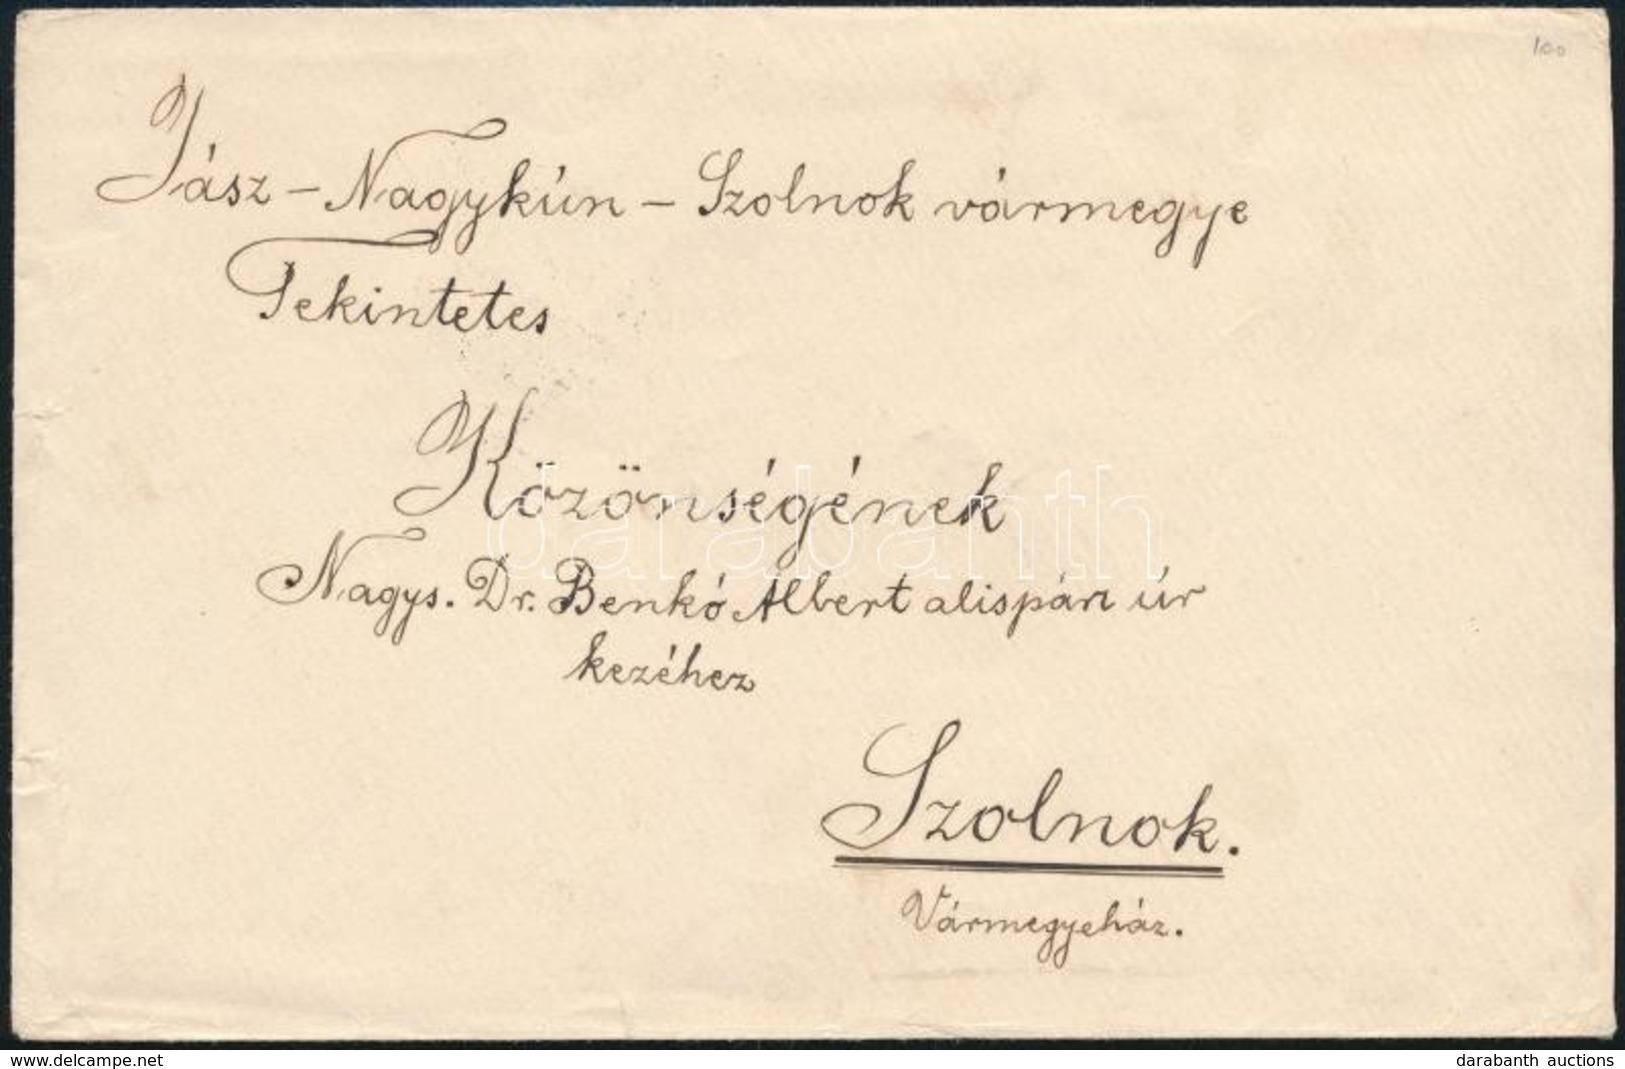 100
Jász-Nagykún-Szolnok vármegye
Tekintetes
Közönségének
darabanth
Nagys. Dr. Benkó Albert alispán úr
kezéhez
Szolnok.
Vármegyeház.
www.delcampe.net
darabanth auctions